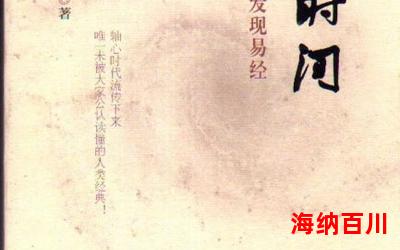 时间
发现易经
轴心时代流传下来
唯一未被大家公认读懂的人类经典！
著
海纳百川